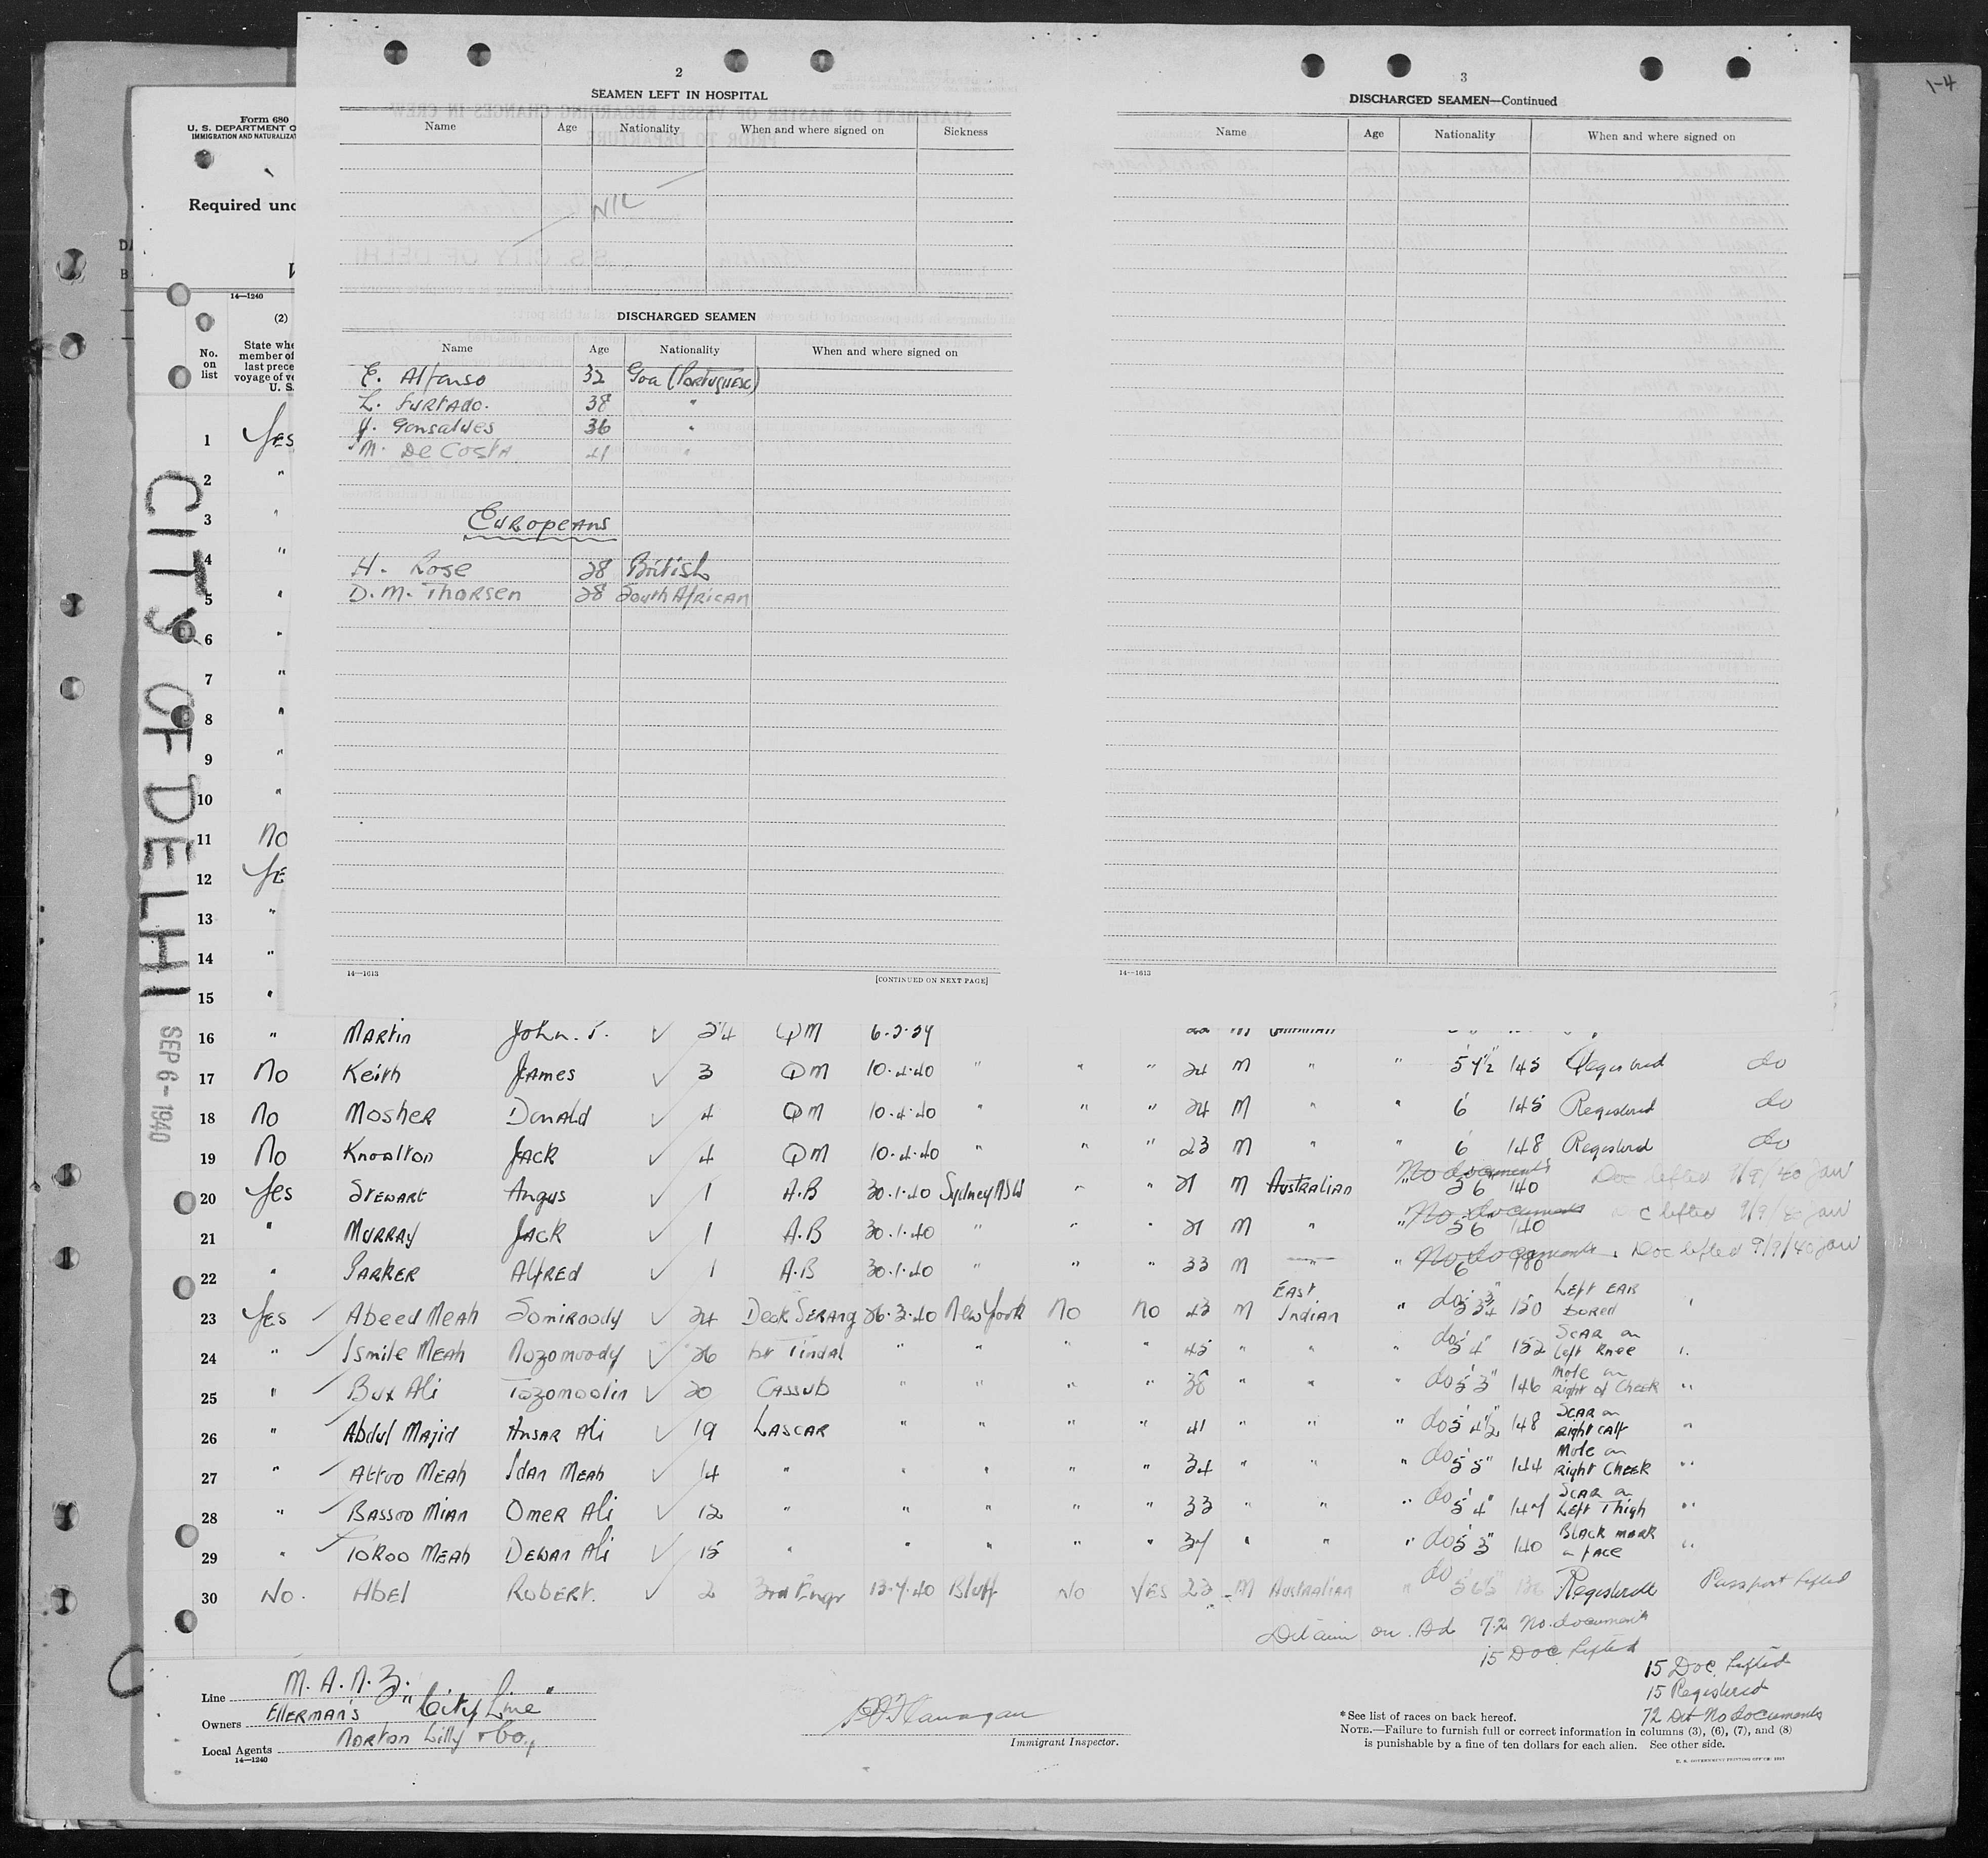 1-4
2
SEAMEN LEFT IN HOSPITAL
Name Age Nationality When and where signed on Sickness
NIL
DISCHARGED SEAMEN
Name Age Nationality When and where signed on
E. Alfonso 32 Goa (Portuguese)
L. Furtado. 38 "
Gonsalves 36 "
M. De Costa 41 "
Europeans
H. Rose 28 British
D.M. Thorsen 28 South African
14—1613 [CONTINUED ON NEXT PAGE]
3
DISCHARGED SEAMEN—Continued
Name Age Nationality When and where signed on
14—1613
Form 680
U. S. DEPARTMENT O
IMMIGRATION AND NATURALIZAT
Required und
14—1240
(2)
No. on list
State whe
member of
last prece
voyage of ve
U. S.
CITY OF DELHI
SEP 6 - 1940
1 Yes
2 "
3 "
4 "
5 "
6 "
7 "
8 "
9 "
10 "
11 No
12 Ye
13 "
14 "
15 "
16 " Martin John. T. ✓ 24 QM
17 No Keith James ✓ 3 QM 10.4.40 " " " 24 M " " 5 7½ 145 Registered do
18 No Mosher Donald ✓ 4 QM 10.4.40 " " " 24 M " " 6 145 Registered do
19 No Knowlton Jack ✓ 4 QM 10.4.40 " " " 23 M " " 6 148 Registered do
20 Yes Stewart Angus ✓ 1 A.B 30.1.40 Sydney NSW " " 21 M Australian " No documents 5 6 140 Doc lifted 9/9/40
21 " Murray Jack ✓ 1 A.B 30.1.40 " " " 21 M " " No documents 5 6 140 Doc lifted 9/9/40
22 " Parker Alfred ✓ 1 A.B 30.1.40 " " " 33 M " " No documents 6 180 Doc lifted 9/9/40
23 Yes Abeed Meah Somiroody ✓ 24 Deck Serang 26.3.40 New York No No 43 M East Indian " do 150 Left ear bored "
24 " Ismile Meah Nozomoody ✓ 26 1st Tindal " " " " 45 " " " do 5' 4" 152 Scar on left knee "
25 " Bux Ali Tozomodin ✓ 20 Cassub " " " " 38 " " " do 5' 3" 146 Mole on right of cheek "
26 " Abdul Majid Ansar Ali ✓ 19 Lascar " " " " 41 " " " do 5' 4½" 148 Scar on right calf "
27 " Attuo Meah Idan Meah ✓ 14 " " " " " 34 " " " do 5' 5" 144 Mole on right cheek "
28 " Bassoo Mian Omer Ali ✓ 12 " " " " " 33 " " " do 5' 4" 147 Scar on left thigh "
29 " Toroo Meah Dewan Ali ✓ 15 " " " " " 37 " " " do 5' 3" 140 Black mark on face "
30 No. Abel Robert. ✓ 2 3rd Engr 13.7.40 Bluff No Yes 23 M Australian " do Registered Passport lifted
Detain on Bd 72 No documents
15 Doc. lifted
15 Doc. Lifted
15 Registered
72 Det No documents
Line M. A. N. Z.
Owners Ellerman's "City Line"
Local Agents Norton Lilly & Co.,
14—1240
Flanagan
Immigrant Inspector.
*See list of races on back hereof.
NOTE.—Failure to furnish full or correct information in columns (3), (6), (7), and (8)
is punishable by a fine of ten dollars for each alien. See other side.